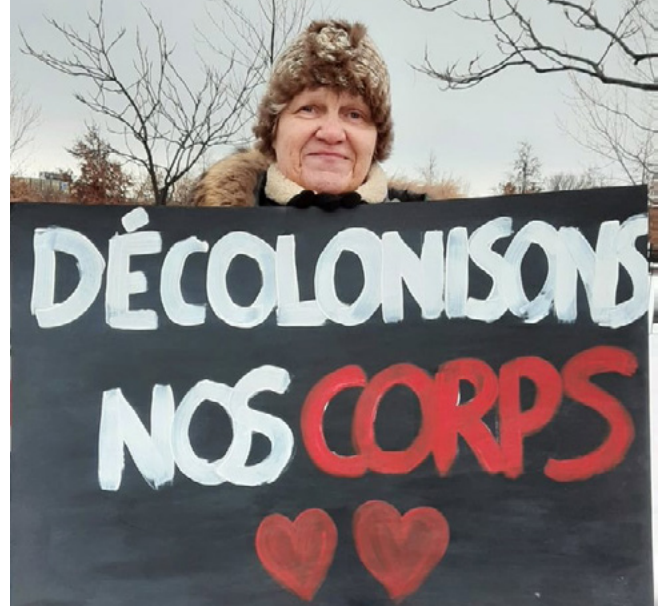 DÉCOLONISONS
NOS CORPS